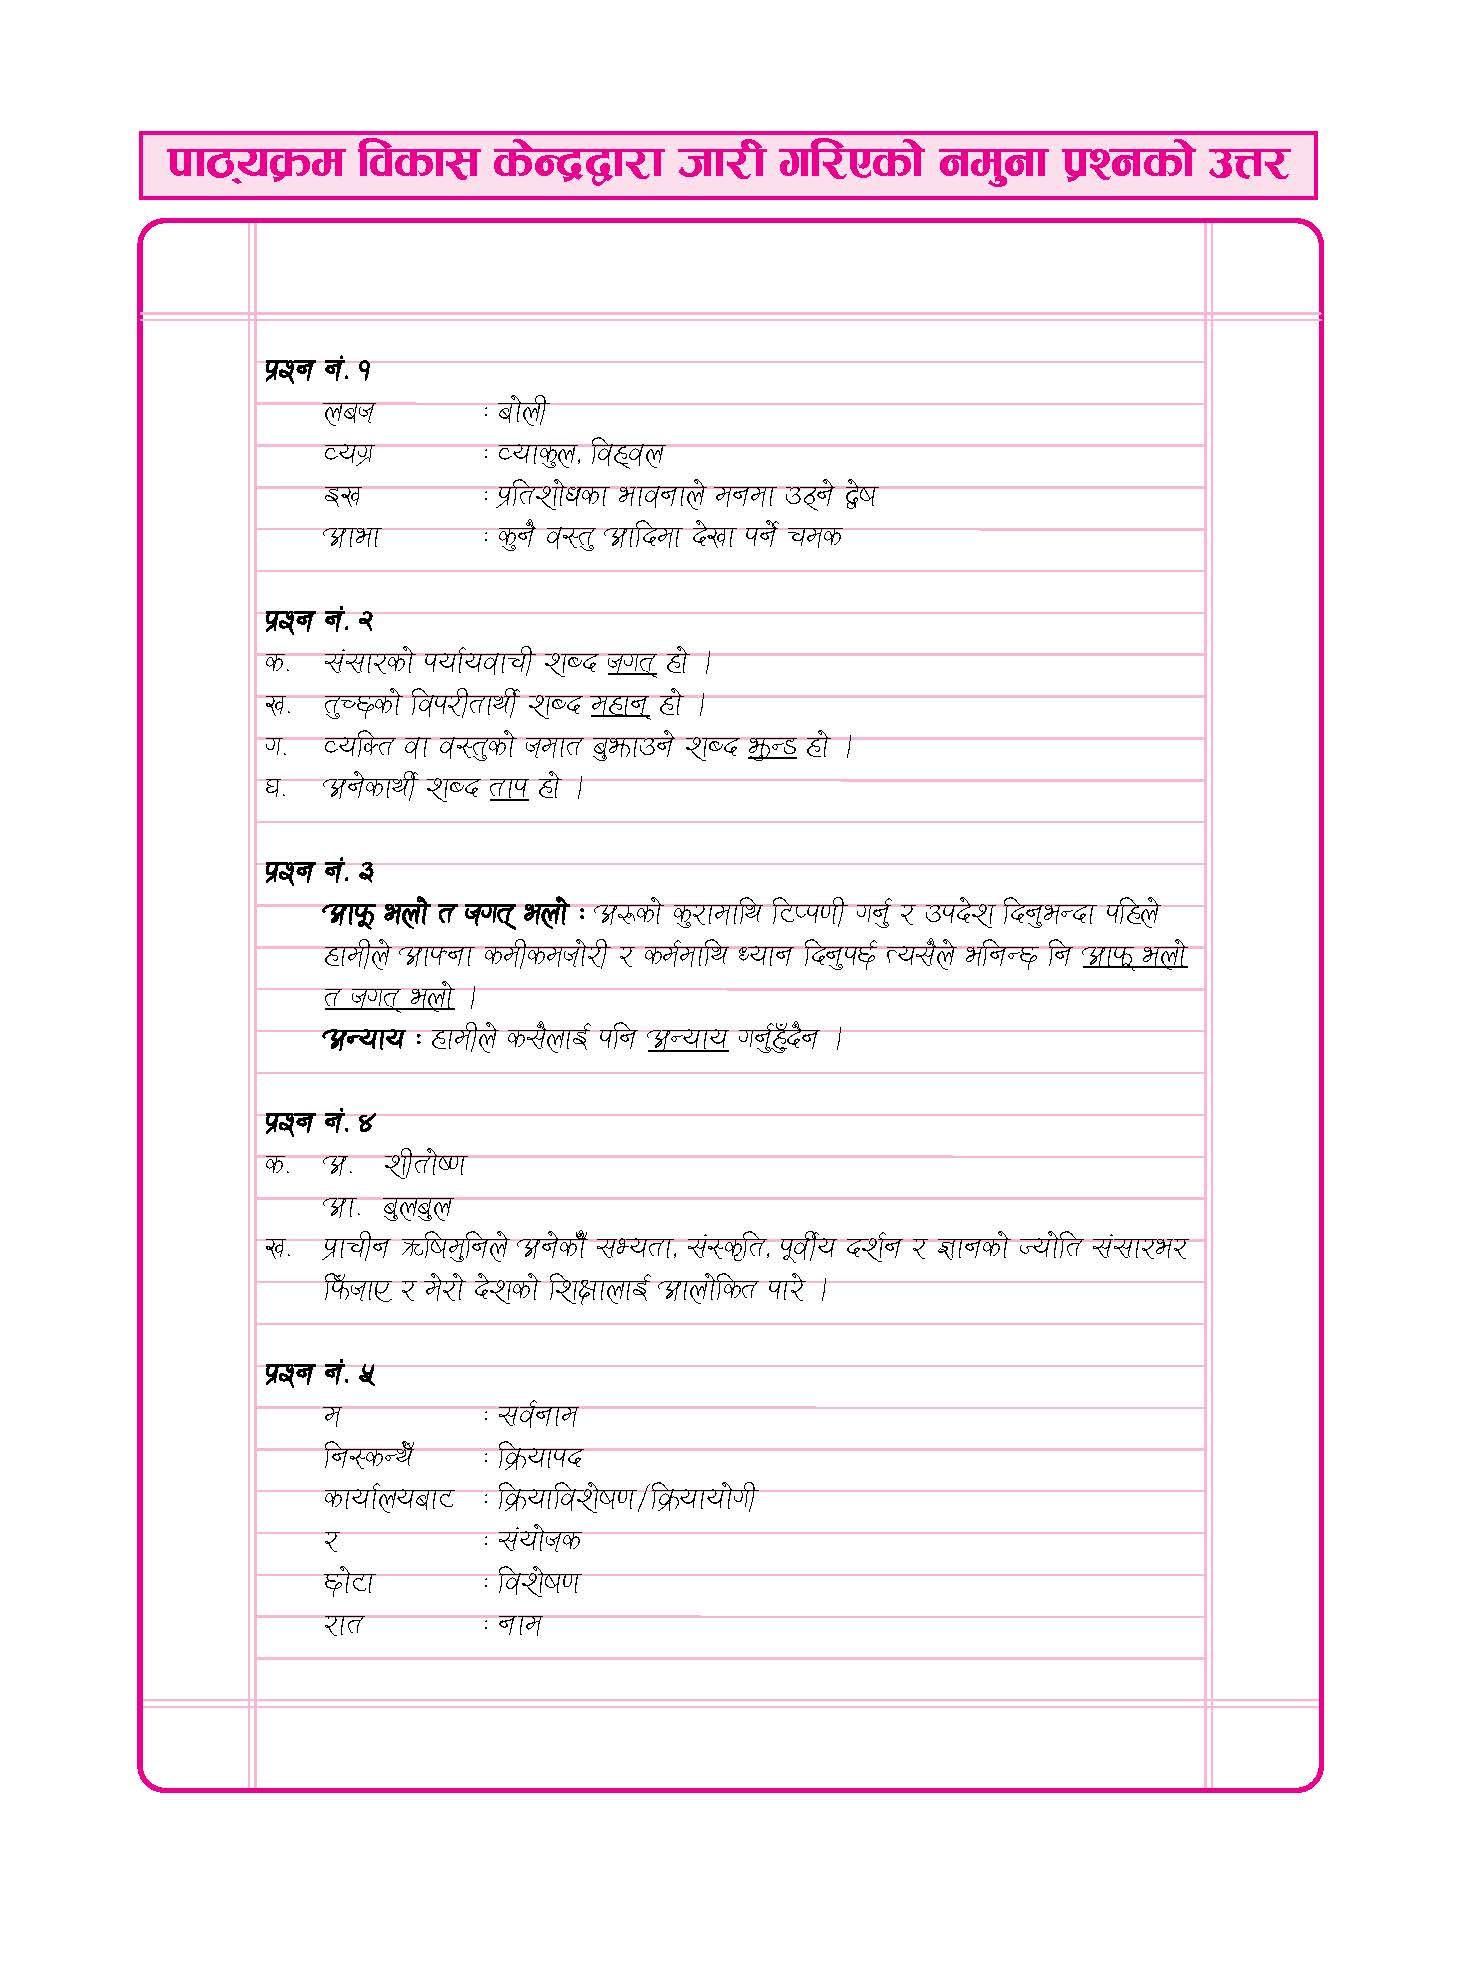 पाठ्यक्रम विकास केन्द्रद्वारा जारी गरिएको नमुना प्रश्नको उत्तर
प्रश्न नं. १
लबज : बोली
व्यग्र : व्याकुल, विह्वल
इख : प्रतिशोधका भावनाले मनमा उठ्ने द्वेष
आभा : कुनै वस्तु आदिमा देखा पर्ने चमक
प्रश्न नं. २
क. संसारको पर्यायवाची शब्द जगत् हो ।
ख. तुच्छको विपरीतार्थी शब्द महान् हो ।
ग. व्यक्ति वा वस्तुको जमात बुझाउने शब्द झुन्ड हो ।
घ. अनेकार्थी शब्द ताप हो ।
प्रश्न नं. ३
आफू भलो त जगत् भलो : अरूको कुरामाथि टिप्पणी गर्नु र उपदेश दिनुभन्दा पहिले
हामीले आफ्ना कमीकमजोरी र कर्ममाथि ध्यान दिनुपर्छ त्यसैले भनिन्छ नि आफू भलो
त जगत् भलो ।
अन्याय : हामीले कसैलाई पनि अन्याय गर्नुहुँदैन ।
प्रश्न नं. ४
क. अ. शीतोष्ण
आ. बुलबुल
ख. प्राचीन ऋषिमुनिले अनेकौँ सभ्यता, संस्कृति, पूर्वीय दर्शन र ज्ञानको ज्योति संसारभर
फिँजाए र मेरो देशको शिक्षालाई आलोकित पारे ।
प्रश्न नं. ५
म : सर्वनाम
निस्कन्थेँ : क्रियापद
कार्यालयबाट : क्रियाविशेषण/क्रियायोगी
र : संयोजक
छोटा : विशेषण
रात : नाम